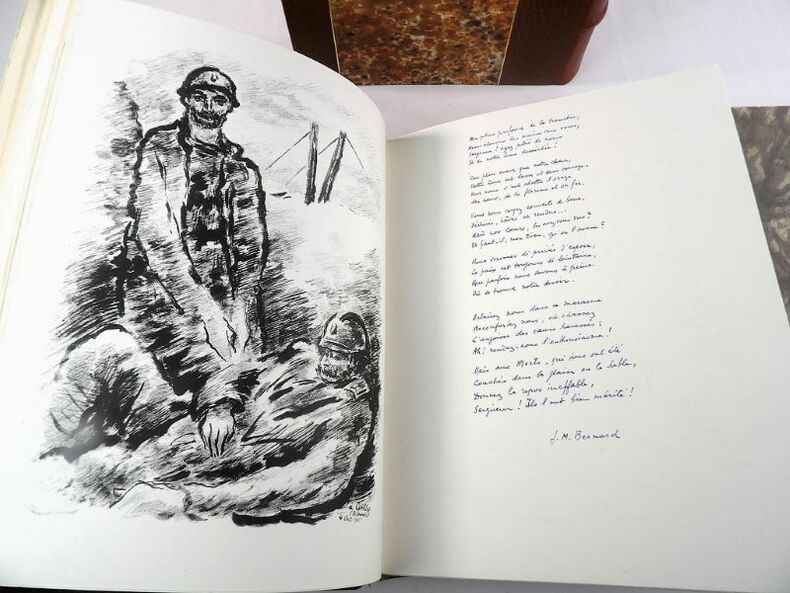 Du plus profond de la tranchée,
Nous élevons les mains vers vous,
Seigneur ! ayez pitié de nous
Et de notre âme desséchée !
Car plus encor que notre chair,
Notre âme est lasse et sans courage.
Sur nous s'est abattu l'orage
Des eaux, de la flamme et du fer.
Vous nous voyez couverts de boue,
Déchirés, hâves et rendus...
Mais nos cœurs, les avez-vous vus ?
Et faut-il, mon Dieu, qu'on l'avoue ?
Nous sommes si privés d'espoir,
La paix est toujours si lointaine,
Que parfois nous savons à peine
Où se trouve notre devoir.
Eclairez-nous dans ce marasme
Réconfortez-nous, et chassez
L'angoisse des cœurs harassés ;
Ah ! rendez-nous l'enthousiasme !
Mais aux Morts, qui tous ont été
Couchés dans la glaise ou le sable,
Donnez le repos ineffable,
Seigneur ! Ils l'ont bien mérité !
J. M. Bernard